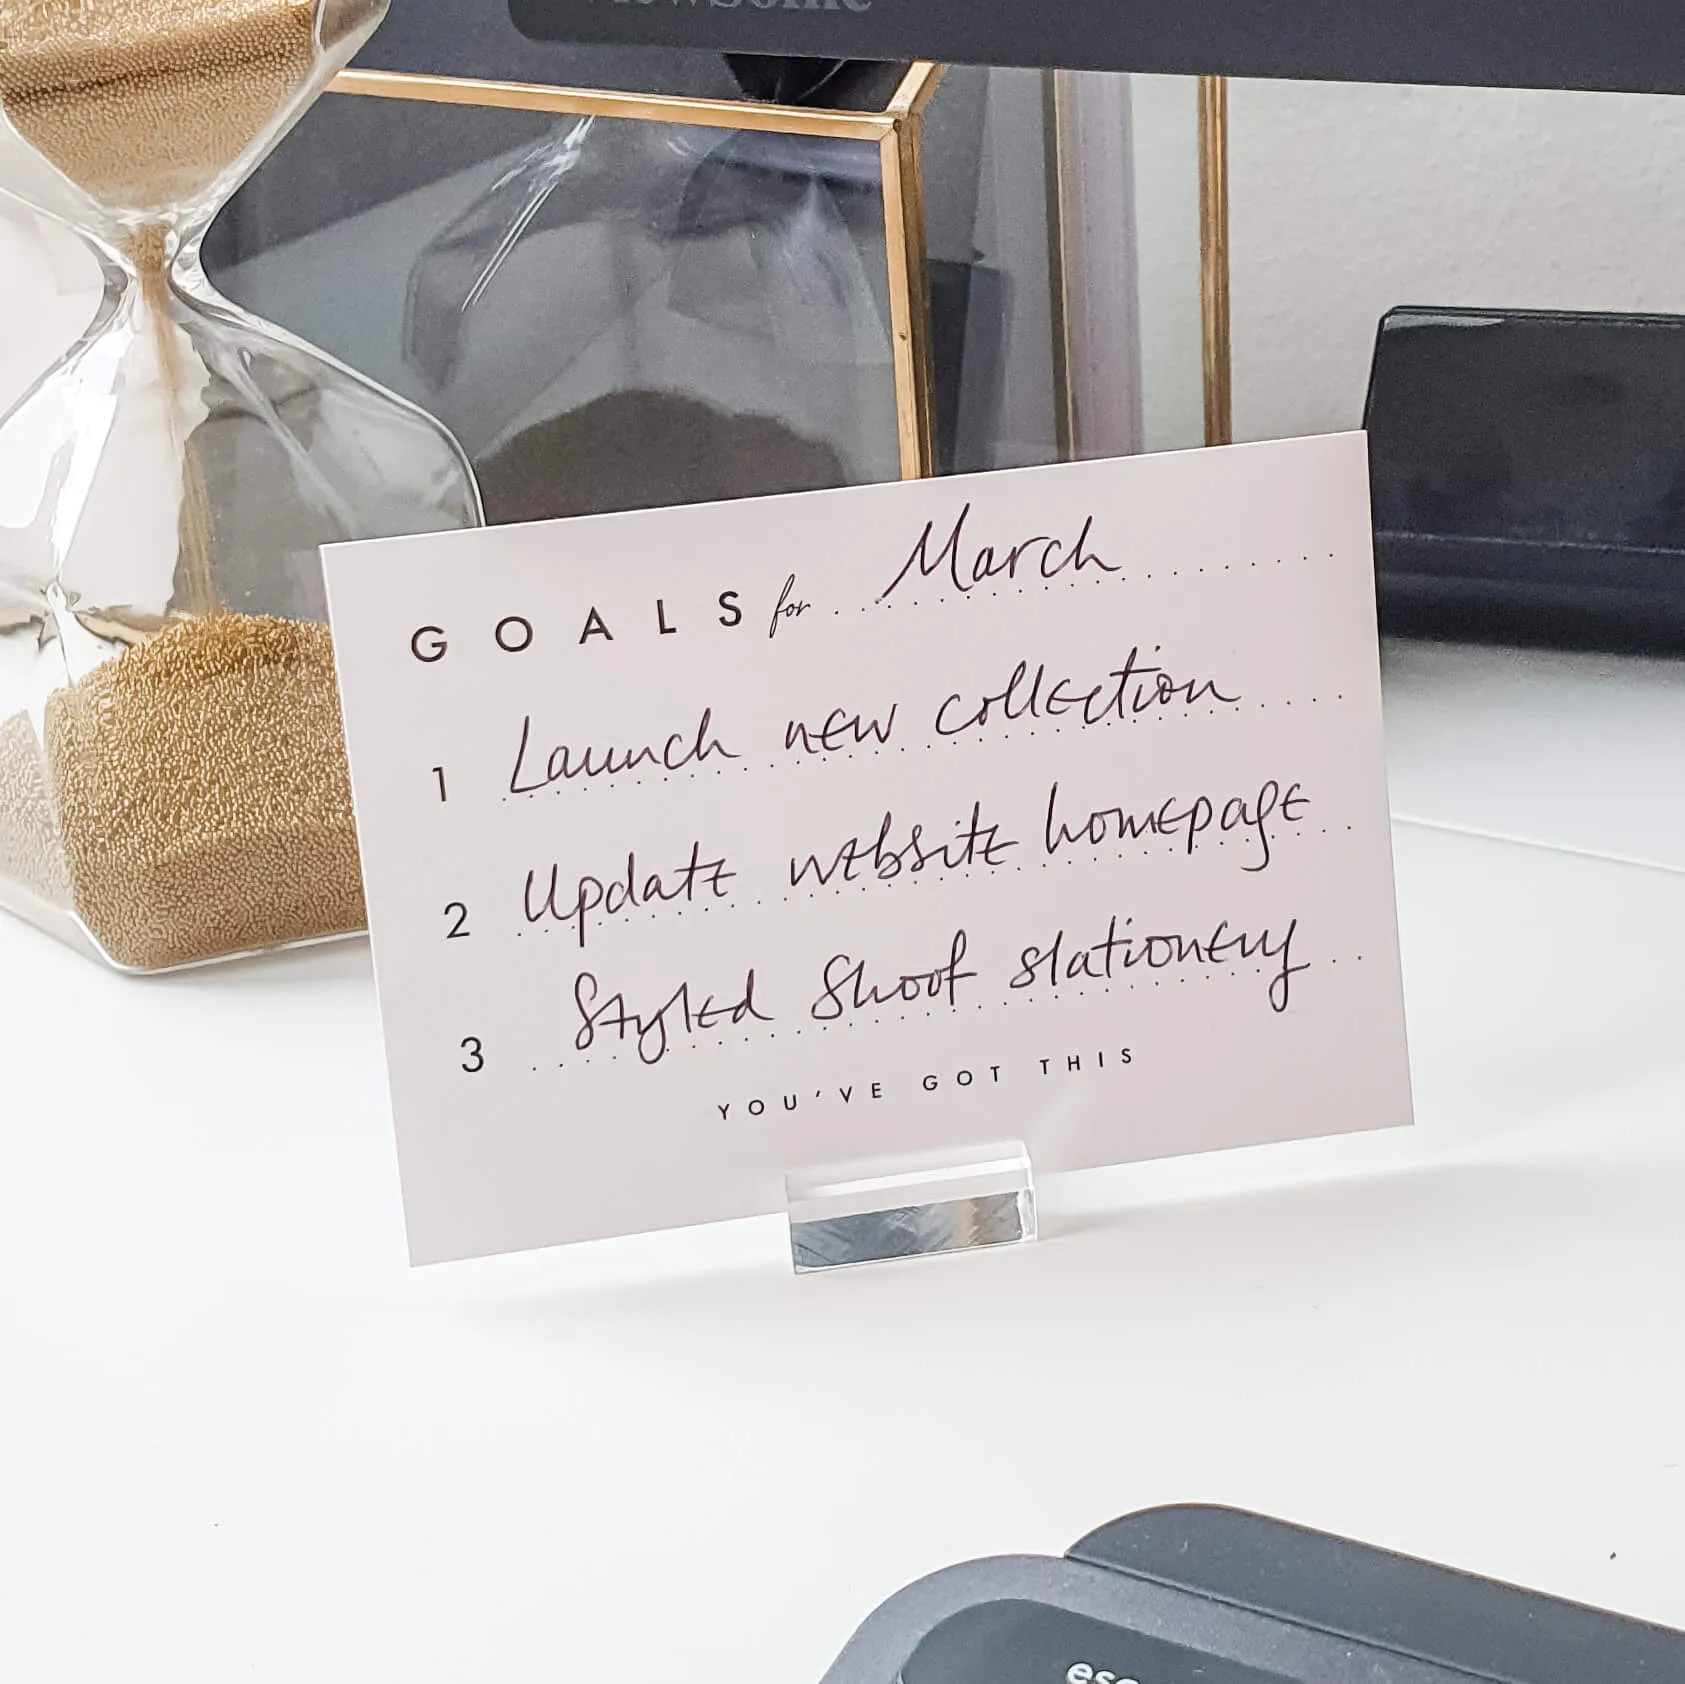 ViewSonic
GOALS for March
1 Launch new collection
2 Update website homepage
3 Styled Shoot stationery
YOU'VE GOT THIS
esc